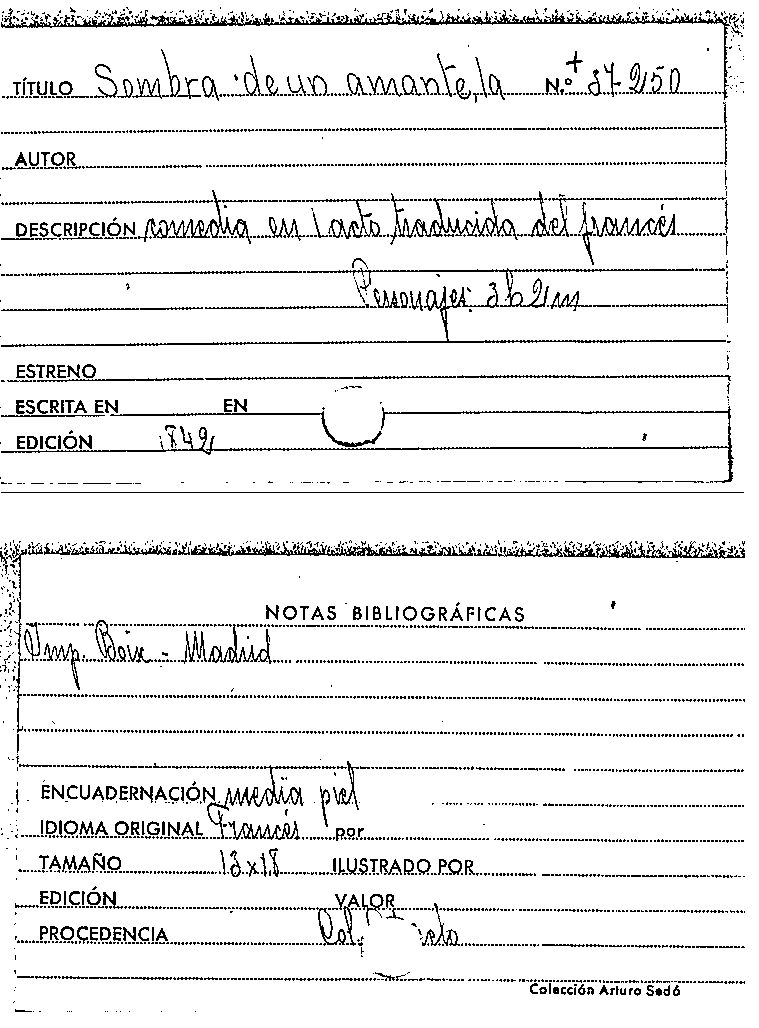 TÍTULO Sombra de un amante, la N.º 37250
AUTOR
DESCRIPCIÓN comedia en 1 acto, traducida del francés
Personajes: 3 h 2 m
ESTRENO
ESCRITA EN EN
EDICIÓN 1842
NOTAS BIBLIOGRÁFICAS
Imp. Boix - Madrid
ENCUADERNACIÓN media piel
IDIOMA ORIGINAL Francés por
TAMAÑO 13x18 ILUSTRADO POR
EDICIÓN VALOR
PROCEDENCIA Col.
Colección Arturo Sedó